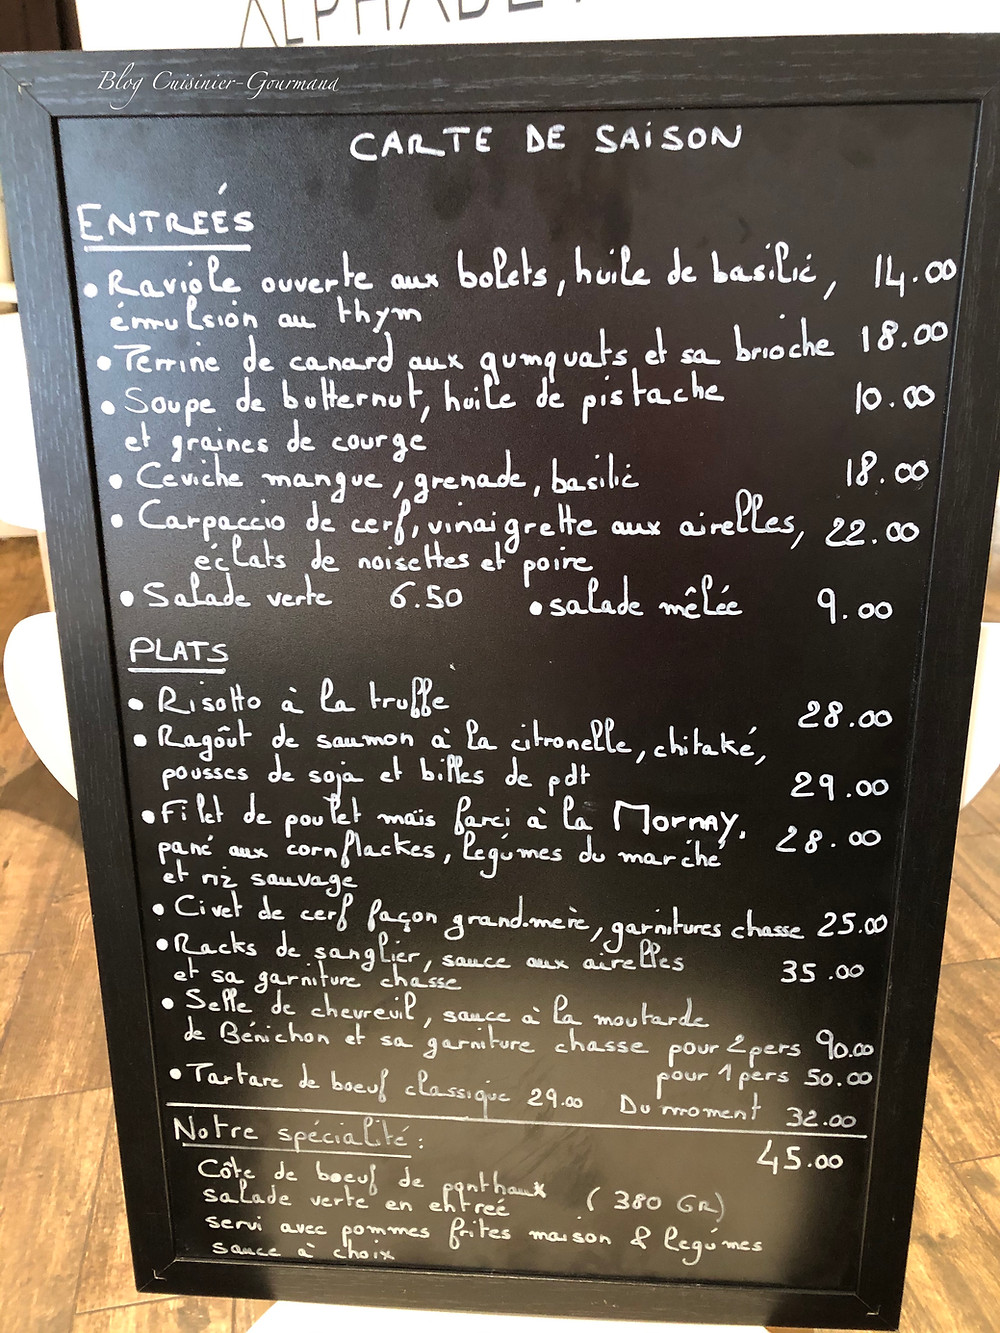 ALPHABE
Blog Cuisinier-Gourmand
CARTE DE SAISON
ENTREÉS
• Raviole ouverte aux bolets, huile de basilic, 14.00
émulsion au thym
• Terrine de canard aux qumquats et sa brioche 18.00
• Soupe de butternut, huile de pistache 10.00
et graines de courge
• Ceviche mangue, grenade, basilic 18.00
• Carpaccio de cerf, vinaigrette aux airelles, 22.00
éclats de noisettes et poire
• Salade verte 6.50 • salade mêlée 9.00
PLATS
• Risotto à la truffe 28.00
• Ragôut de saumon à la citronelle, chitaké,
pousses de soja et billes de pdt 29.00
• Filet de poulet maïs farci à la Mornay, 28.00
pané aux cornflackes, légumes du marché
et riz sauvage
• Civet de cerf façon grand-mère, garnitures chasse 25.00
• Racks de sanglier, sauce aux airelles
et sa garniture chasse 35.00
• Selle de chevreuil, sauce à la moutarde
de Bénichon et sa garniture chasse pour 2 pers 90.00
pour 1 pers 50.00
• Tartare de boeuf classique 29.00 Du moment 32.00
Notre spécialité: 45.00
Côte de boeuf de ponthaux
salade verte en entreé (380 GR)
servi avec pommes frites maison & légumes
sauce à choix